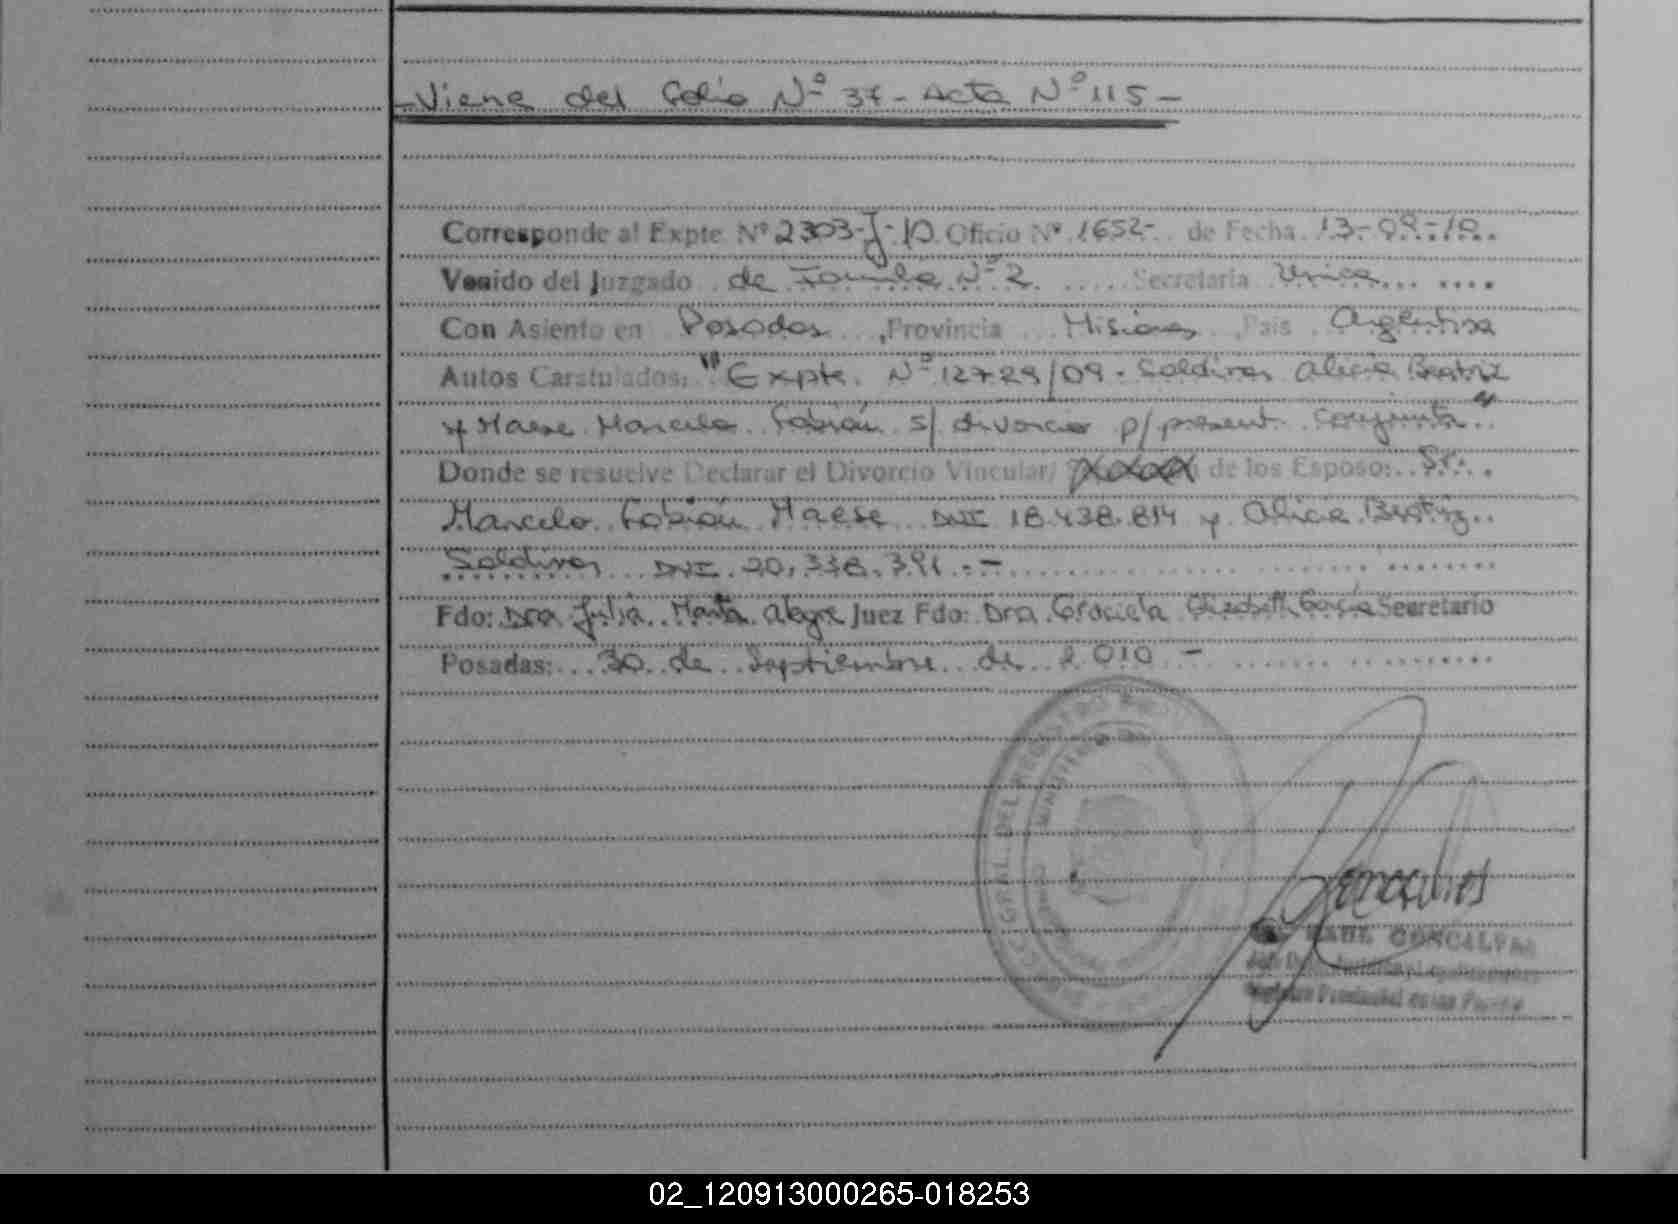 -Viene del Folio Nº 37- Acta Nº 115-
Corresponde al Expte Nº 2303-J-10 Oficio Nº 1652- de Fecha 13-09-10
Venido del Juzgado de Familia Nº 2 Secretaria Unica
Con Asiento en Posadas, Provincia Misiones, Pais Argentina
Autos Caratulados: "Expte. Nº 12729/09. Saldivar Alicia Beatriz
y Maese Marcelo Fabián s/ divorcio p/ present. conjunta"
Donde se resuelve Declarar el Divorcio Vincular/ de los Esposo: Sr.
Marcelo Fabián Maese DNI 18.438.814 y Alicia Beatriz
Saldivar DNI. 20.338.391.-
Fdo: Dra Julia Marta Alegre Juez Fdo: Dra. Graciela Elizabeth García Secretario
Posadas: 30 de Septiembre de 2010-
GRAL. DEL REGISTRO
RAUL GONCALVES
02_120913000265-018253